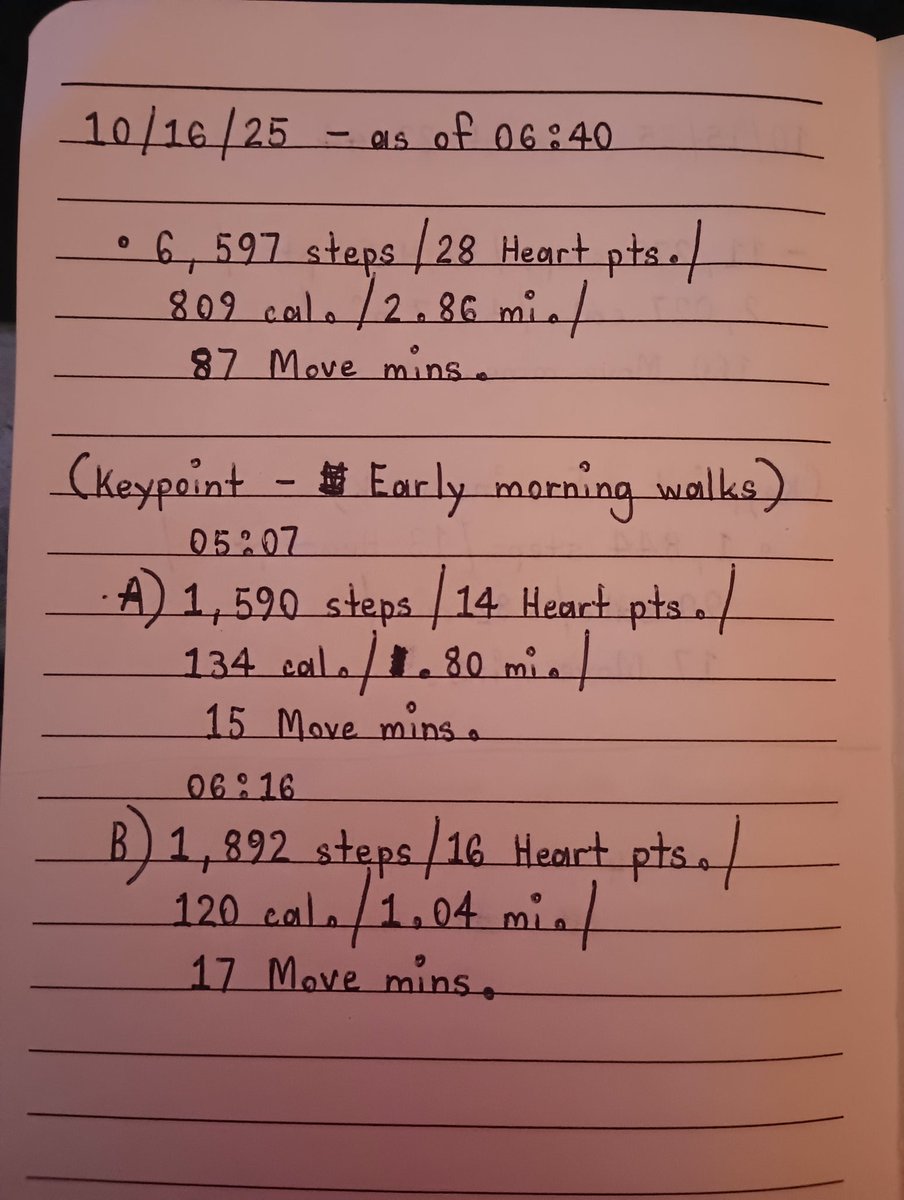 10/16/25 - as of 06:40
• 6,597 steps/28 Heart pts./
809 cal./2.86 mi./
87 Move mins.
(Keypoint - Early morning walks)
05:07
A) 1,590 steps/14 Heart pts./
134 cal./.80 mi./
15 Move mins.
06:16
B) 1,892 steps/16 Heart pts./
120 cal./1.04 mi./
17 Move mins.